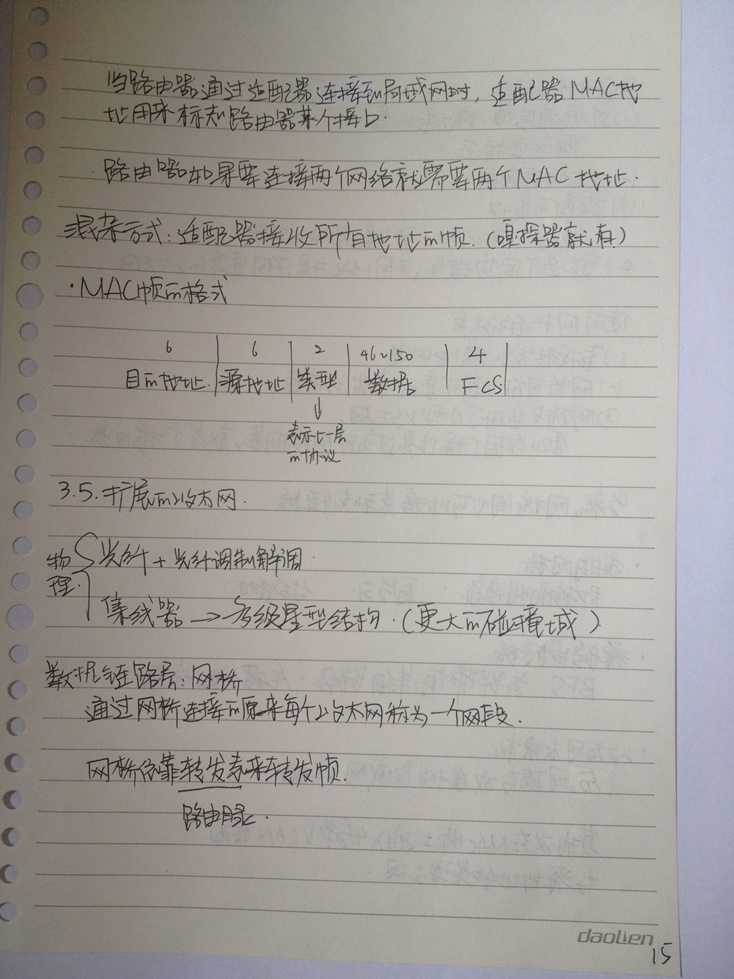 当路由器通过适配器连接到局域网时,适配器MAC地
址用来标志路由器某个接口.
路由器如果要连接两个网络就需要两个MAC地址.
混杂方式:适配器接收所有地址的帧.(嗅探器就有)
·MAC帧的格式
6 | 6 | 2 | 46~150 | 4 |
目的地址 | 源地址 | 类型 | 数据 | FCS |
↓
表示上一层
的协议
3.5.扩展的以太网.
物理. { 光纤+光纤调制解调.
集线器→多级星型结构.(更大的碰撞域)
数据链路层:网桥
通过网桥连接的原来每个以太网称为一个网段.
网桥依靠转发表来转发帧.
路由目录.
daolien
15